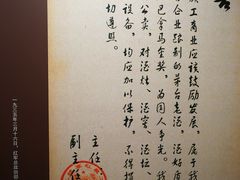 族工商业应该鼓励发展,属于我
企业酿制的茅台老酒,酒好质
巴拿马金奖,为国人争光。我
公卖,对酒灶、酒窖、酒坛、
设备,均应加以保护,不得损
切遵照。
主任
副主任
一九三五年三月十六日,红军总政治部